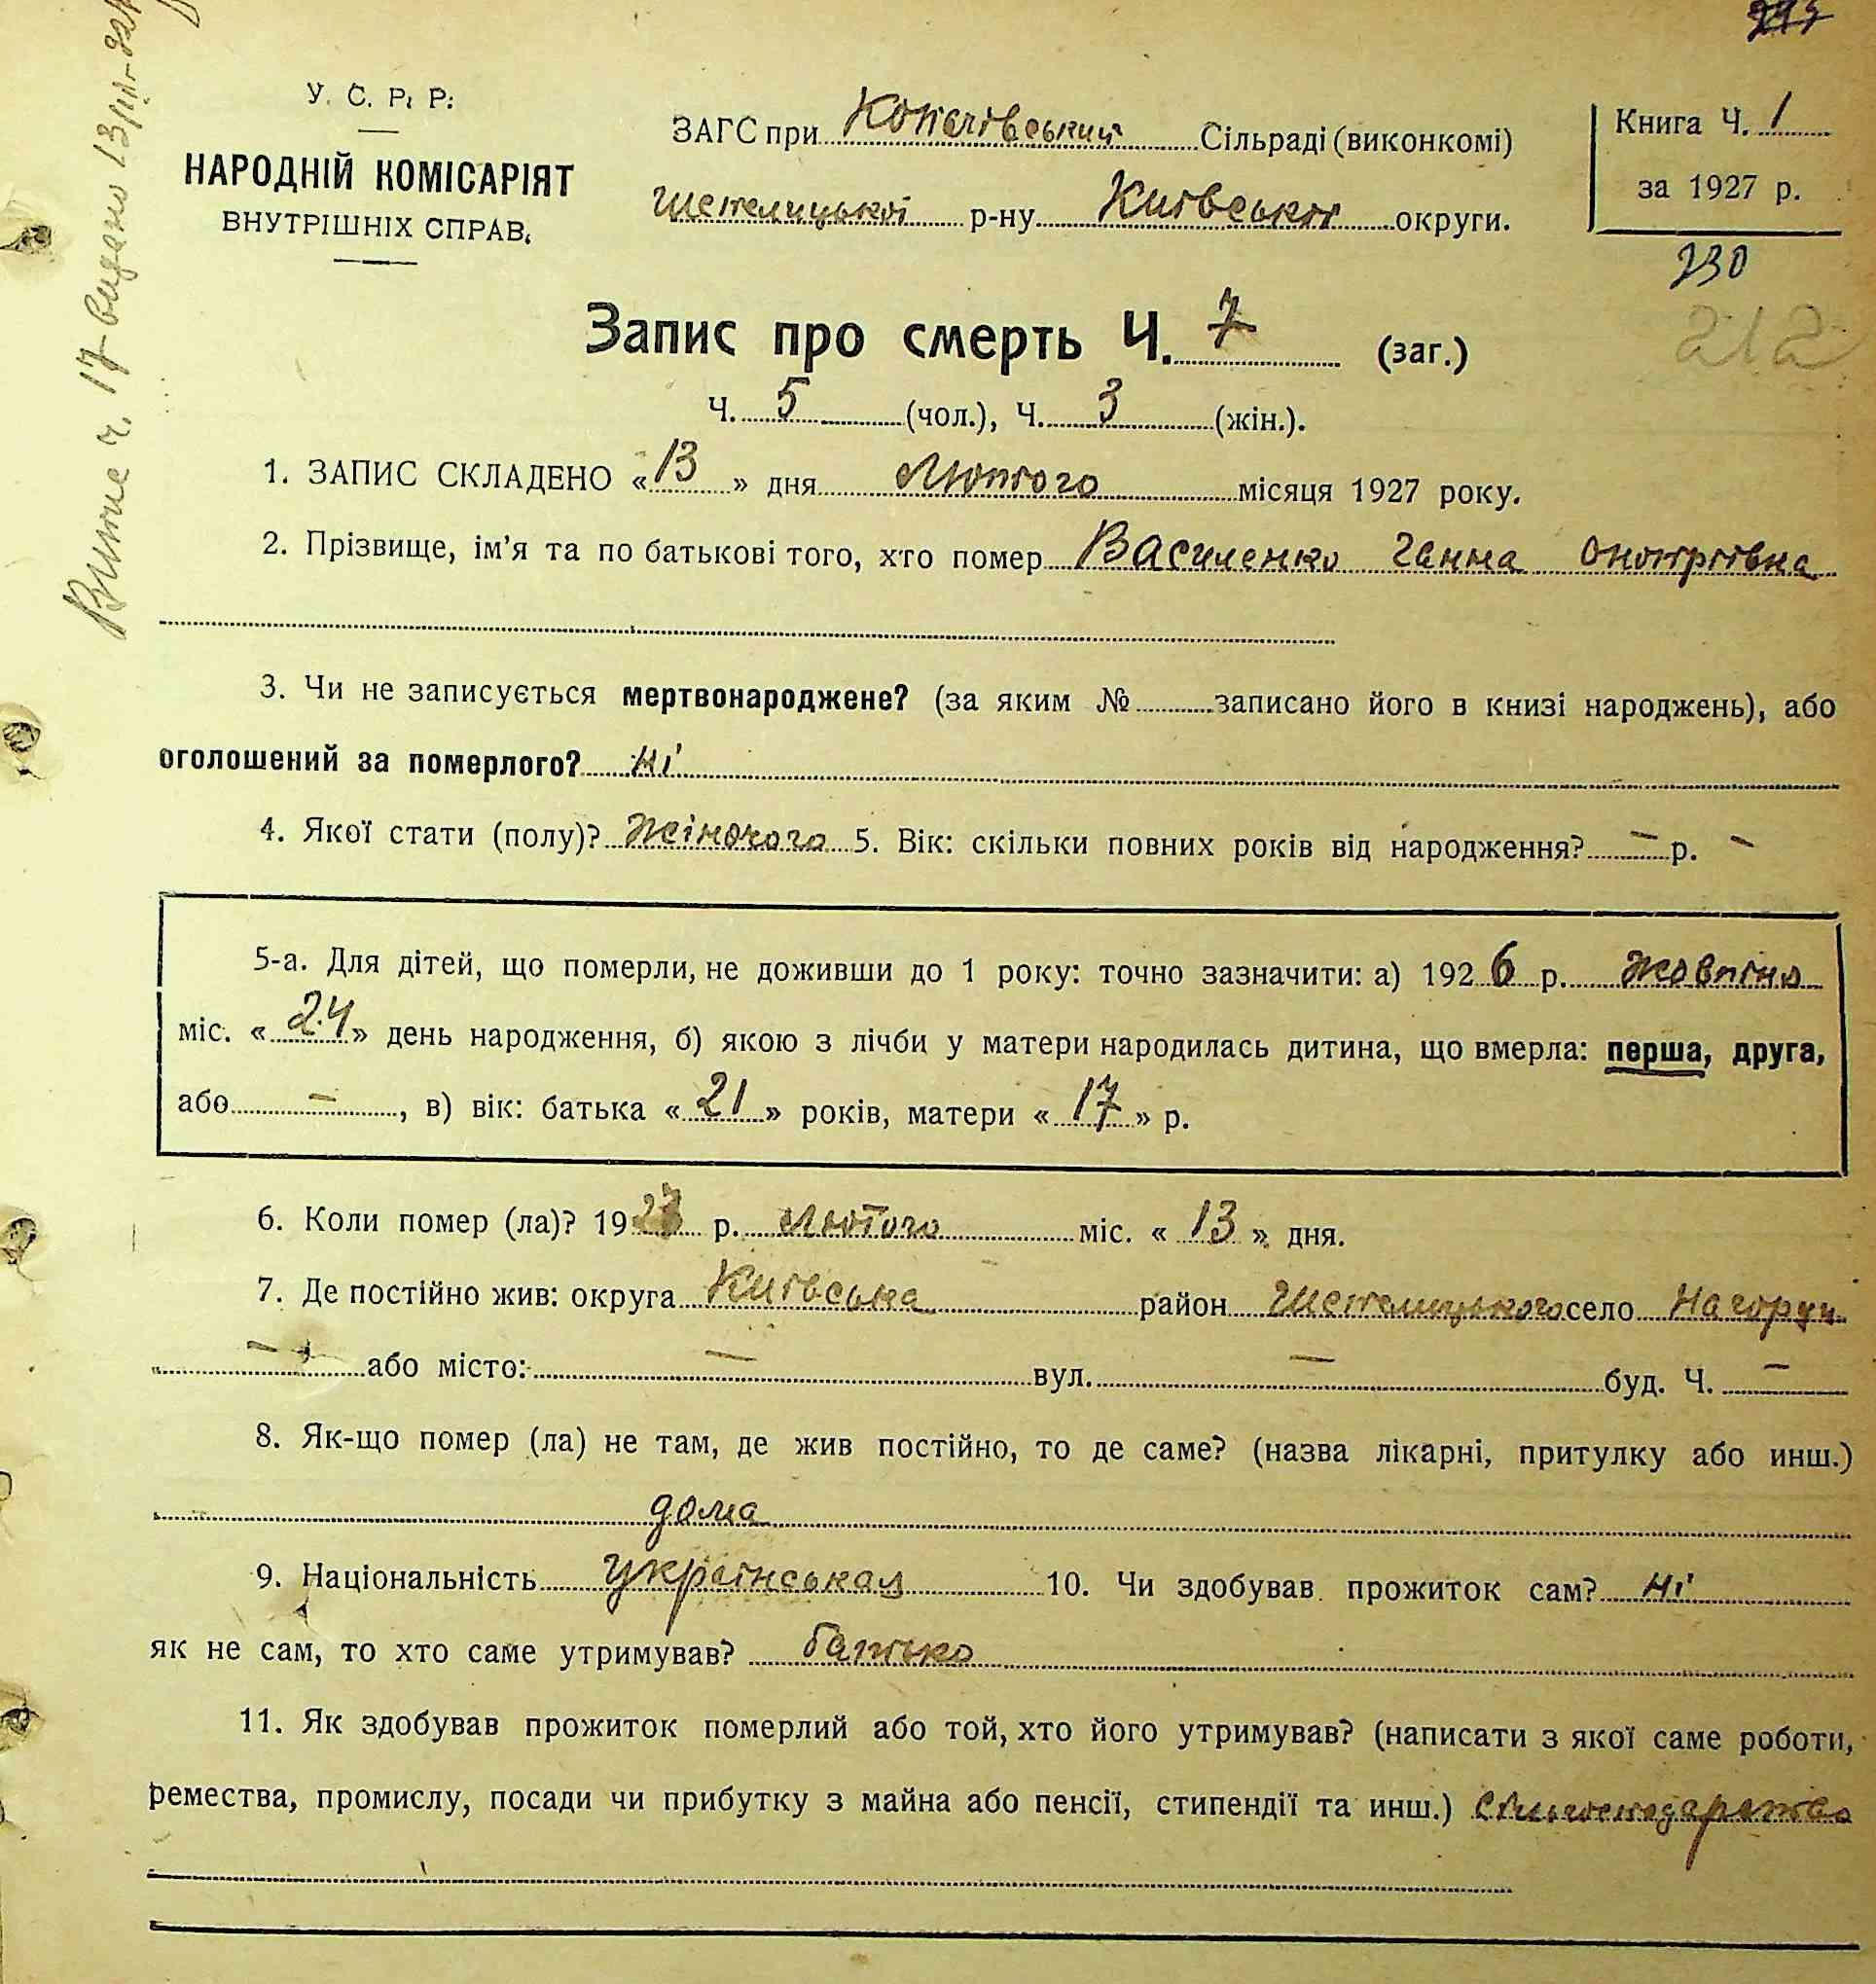 У. С. Р. Р.
НАРОДНІЙ КОМІСАРІЯТ
ВНУТРІШНІХ СПРАВ.
ЗАГС при Копачівський Сільраді (виконкомі)
Шепелицької р-ну Київської округи.
Книга Ч. 1
за 1927 р.
230
212
Запис про смерть Ч. 7 (заг.)
Ч. 5 (чол.), Ч. 3 (жін.).
1. ЗАПИС СКЛАДЕНО «13» дня Лютого місяця 1927 року.
2. Прізвище, ім'я та по батькові того, хто помер Василенко Ганна Онопріівна
3. Чи не записується мертвонароджене? (за яким № записано його в книзі народжень), або
оголошений за померлого? ні
4. Якої стати (полу)? Жіночого 5. Вік: скільки повних років від народження? – р. –
5-а. Для дітей, що померли, не доживши до 1 року: точно зазначити: а) 1926 р. жовтня
міс. «24» день народження, б) якою з лічби у матери народилась дитина, що вмерла: перша, друга,
або –, в) вік: батька «21» років, матери «17» р.
6. Коли помер (ла)? 1927 р. Лютого міс. «13» дня.
7. Де постійно жив: округа Київська район Шепелицького село Нагорці
– або місто: – вул. – буд. Ч. –
8. Як-що помер (ла) не там, де жив постійно, то де саме? (назва лікарні, притулку або инш.)
дома
9. Національність Українська 10. Чи здобував прожиток сам? ні
як не сам, то хто саме утримував? батько
11. Як здобував прожиток померлий або той, хто його утримував? (написати з якої саме роботи,
ремества, промислу, посади чи прибутку з майна або пенсії, стипендії та инш.)
Витяг ч. 17 видано